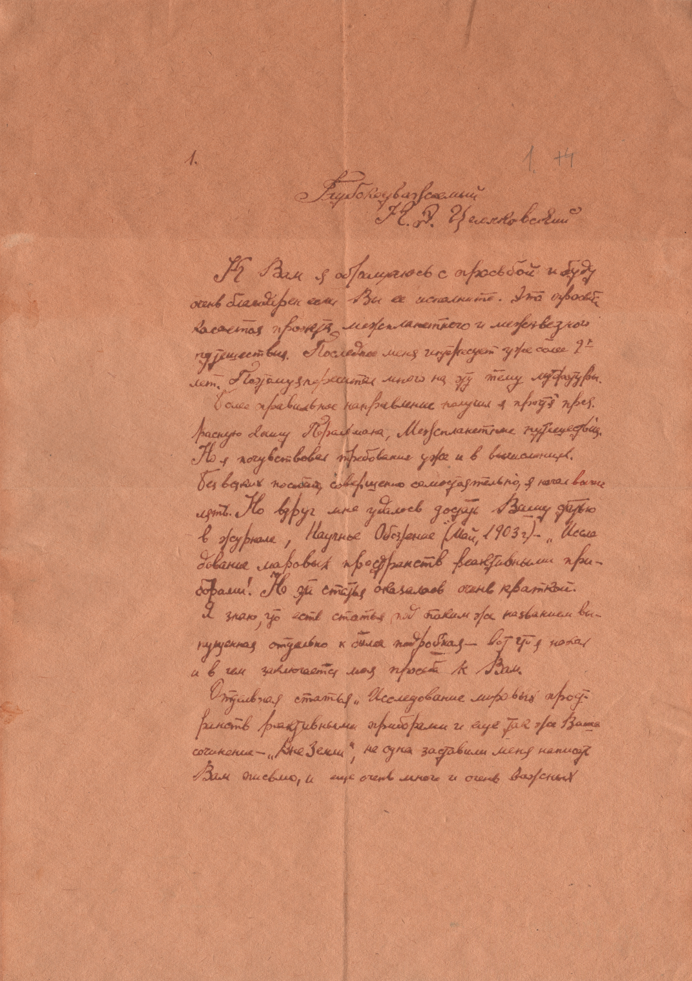 1.
1. 44
Глубокоуважаемый
К. Э. Циолковский
К Вам я обращаюсь с просьбой и буду
очень благодарен если Вы ее исполните. Эта просьба
касается проекта межпланетного и межзвездного
путешествия. Последнее меня интересует уже более 2х
лет. Поэтому перечитал много на эту тему литературы.
Более правильное направление получил я прочтя прек.
расную книгу Перельмана, Межпланетные путешествия.
Но я почувствовал требование уже и в вычислениях.
Без всяких пособий, совершенно самостоятельно, я начал вычис
лять. Но вдруг мне удалось достать Вашу статью
в журнале, Научное Обозрение (Май, 1903 г.) - „Иссле
дование мировых пространств реактивными при-
борами! Но эта статья оказалась очень краткой.
Я знаю, что есть статья под таким же названием вы-
пущенная отдельно и более подробная — вот что я искал
и в чем заключается моя просьба к Вам.
Отдельная статья „Исследование мировых прост
ранств реактивными приборами и еще так же Ваше
сочинение — „Вне Земли", не одна заставили меня написать
Вам письмо, и еще очень много и очень важных